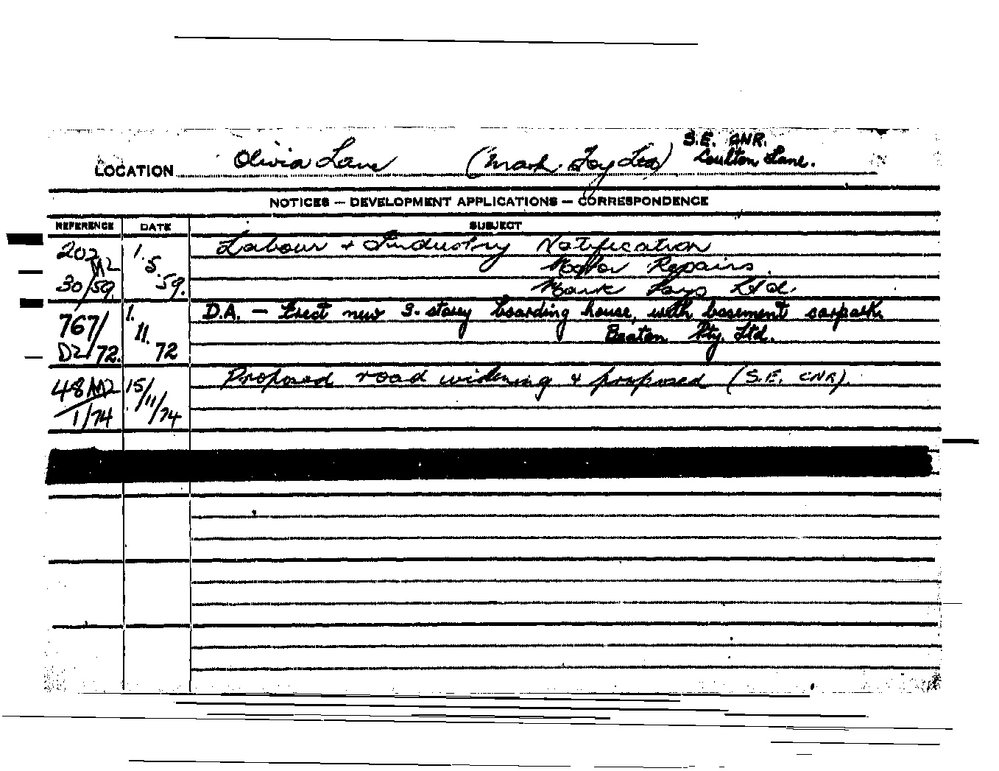 S.E. CNR.
LOCATION Olivia Lane (Mark Foy Ltd) Coulton Lane.
NOTICES — DEVELOPMENT APPLICATIONS — CORRESPONDENCE
REFERENCE DATE SUBJECT
202 1. Labour + Industry Notification
M2 5. Motor Repairs.
30/59 59. Mark Foys Ltd.
767/ 1. D.A. — Erect new 3. storey boarding house, with basement carpark.
11. Beaton Pty. Ltd.
D2/72. 72
48M2 15/ Proposed road widening & proposed (S.E. CNR).
1/74 11/74